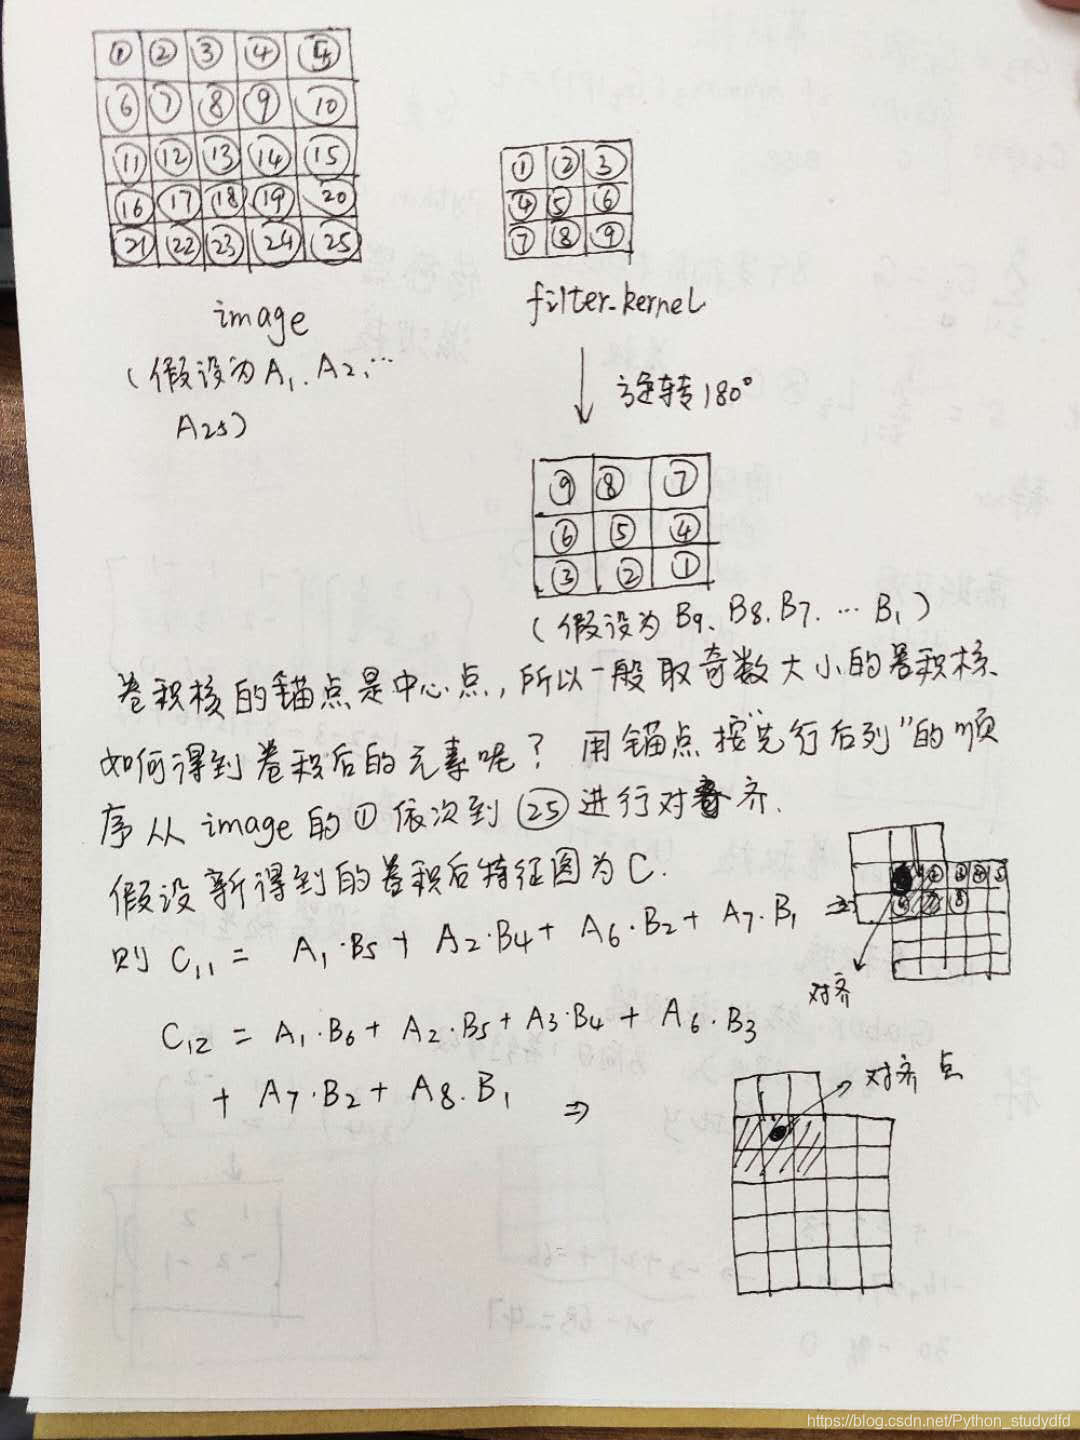 ① ② ③ ④ ⑤
⑥ ⑦ ⑧ ⑨ ⑩
⑪ ⑫ ⑬ ⑭ ⑮
⑯ ⑰ ⑱ ⑲ ⑳
㉑ ㉒ ㉓ ㉔ ㉕
image
(假设为A₁.A₂,…
A₂₅)
① ② ③
④ ⑤ ⑥
⑦ ⑧ ⑨
filter-kernel
旋转180°
⑨ ⑧ ⑦
⑥ ⑤ ④
③ ② ①
(假设为B₉、B₈、B₇.…B₁)
卷积核的锚点是中心点,所以一般取奇数大小的卷积核、
如何得到卷积后的元素呢?用锚点按"先行后列"的顺
序从image的①依次到㉕进行对齐.
假设新得到的卷积后特征图为C.
则 C₁₁ = A₁·B₅+ A₂·B₄+ A₆·B₂+ A₇·B₁ ⇒
② ③ ④ ⑤
⑥ ⑧
对齐
C₁₂ = A₁·B₆+ A₂·B₅+A₃·B₄+ A₆·B₃
+ A₇·B₂+ A₈.B₁ ⇒
对齐点
https://blog.csdn.net/Python_studydfd